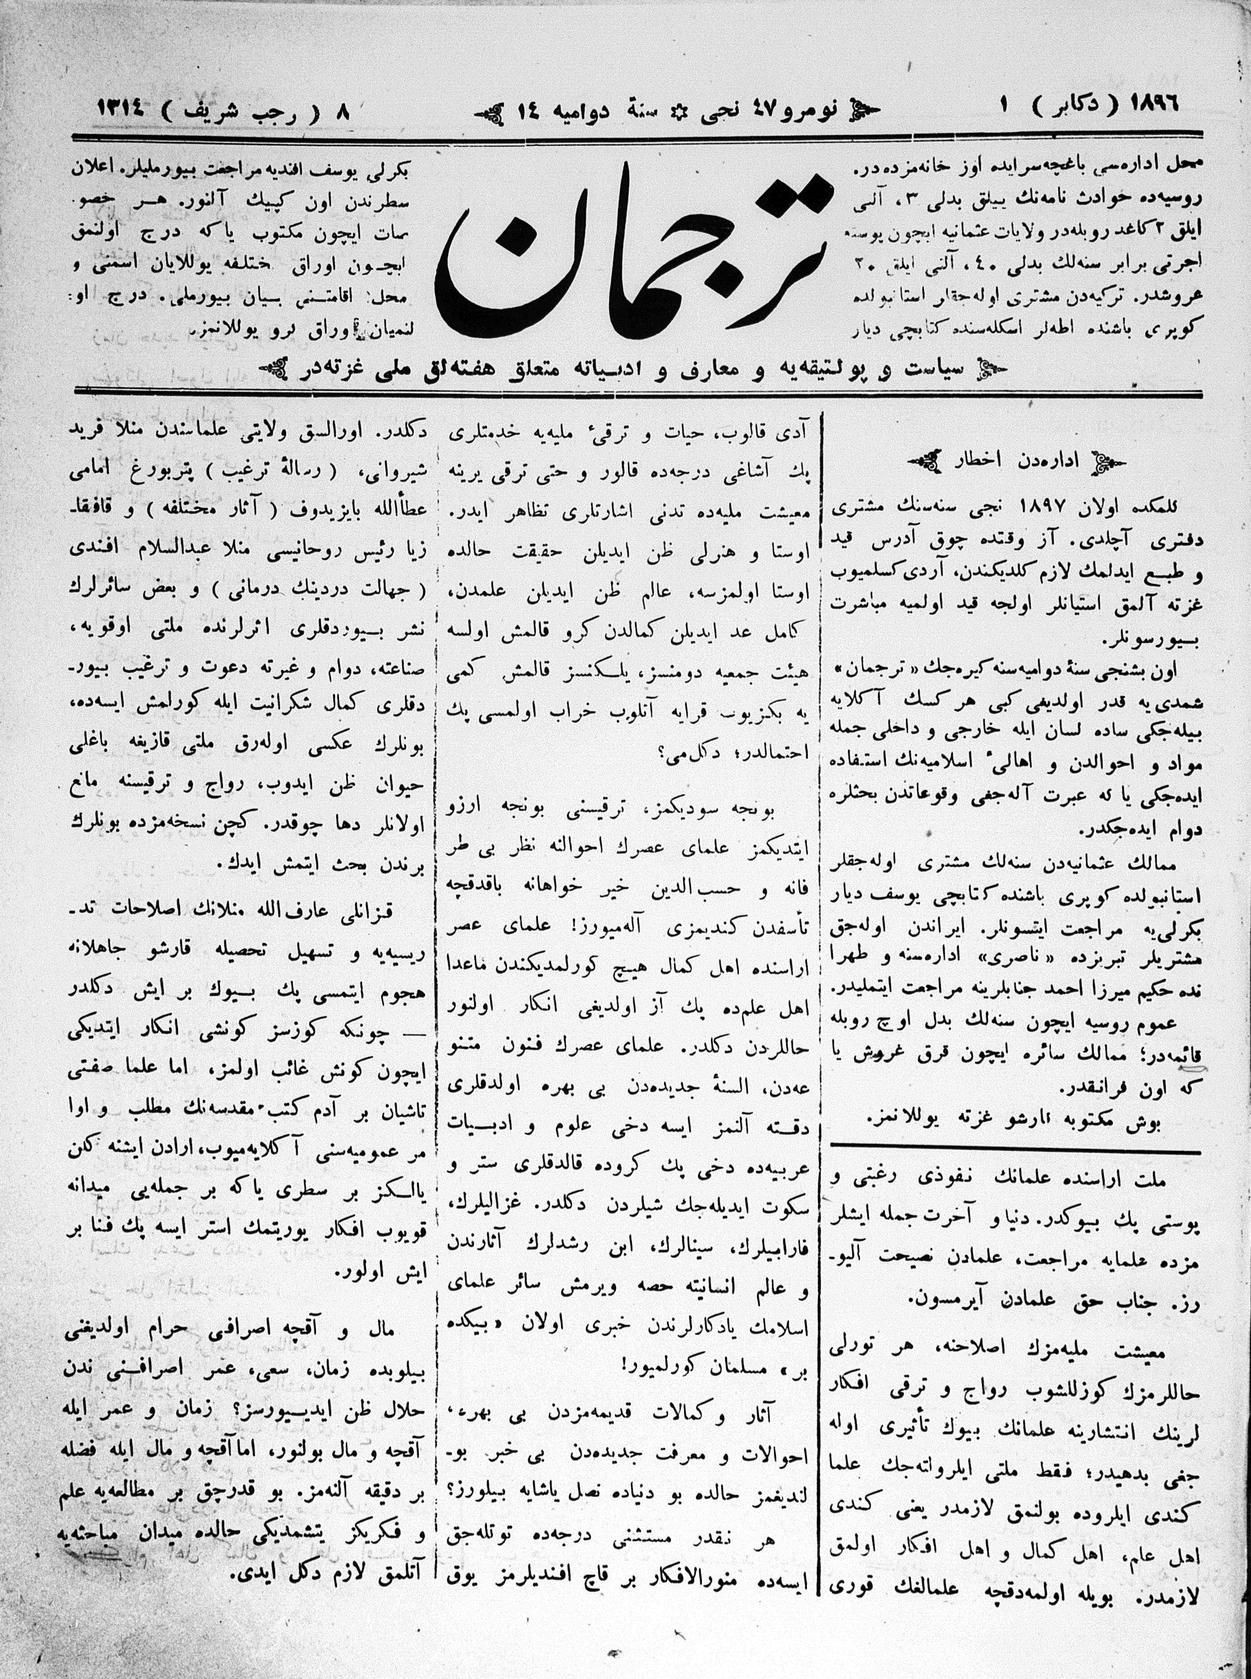 ١٨٩٦ ( دكابر ) ١
نومرو ٤٧ نجی ✲ سنهٔ دواميه ١٤
٨ ( رجب شريف ) ١٣١٤
محل اداره‌سی باغچه‌سرايده اوز خانه‌مزده‌در.
روسيه‌ده حوادث نامه‌نك ييللق بدلی ٣، آلتی
ايلق ٢ كاغد روبله‌در ولايات عثمانيه ايچون پوسته
اجرتی برابر سنه‌لك بدلی ٤٠، آلتی ايلق ٢٠
غروشدر. تركيه‌دن مشتری اوله‌جقلر استانبولده
كوپری باشنده اطه‌لر اسكله‌سنده كتابچی ديار
ترجمان
بكرلی يوسف افنديه مراجعت بيورمليلر. اعلان
سطرندن اون كپيك آلنور. هر خصو۔
صات ايچون مكتوب ياكه درج اولنمق
ايچون اوراق مختلفه يوللايان اسمنی و
محل اقامتنی بيان بيورملی. درج او۔
لنميان اوراق كرو يوللانمز.
سياست و پولتيقه‌يه و معارف و ادبياته متعلق هفته‌لق ملی غزته‌در
اداره‌دن اخطار
كلمكده اولان ١٨٩٧ نجی سنه‌سنك مشتری
دفتری آچلدی. آز وقتده چوق آدرس قيد
و طبع ايدلمك لازم كلديكندن، آردی كسلميوب
غزته آلمق استيانلر اولجه قيد اولميه مباشرت
بيورسونلر.
اون بشنجی سنهٔ دواميه‌سنه كيره‌جك « ترجمان »
شمدی‌يه قدر اولديغی كبی هر كسك آكلايه
بيله‌جكی ساده لسان ايله خارجی و داخلی جمله
مواد و احوالدن و اهالیٔ اسلاميه‌نك استفاده
ايده‌جكی يا له عبرت آله‌جغی وقوعاتدن بحثلره
دوام ايده‌جكدر.
ممالك عثمانيه‌دن سنه‌لك مشتری اوله‌جقلر
استانبولده كوپری باشنده كتابچی يوسف ديار
بكرلی‌يه مراجعت ايتسونلر. ايراندن اوله‌جق
مشتريلر تبريزده « ناصری » اداره‌سنه و طهرا
نده حكيم ميرزا احمد جنابلرينه مراجعت ايتمليدر.
عموم روسيه ايچون سنه‌لك بدل اوچ روبله
قائمه‌در؛ ممالك سائره ايچون قرق غروش يا
كه اون فرانقدر.
بوش مكتوبه قارشو غزته يوللانمز.
ملت اراسنده علمانك نفوذی رغبتی و
پوستی پك بيوكدر. دنيا و آخرت جمله ايشلر
مزده علمايه مراجعت، علمادن نصيحت آليو۔
رز. جناب حق علمادن آيرمسون.
معيشت مليه‌مزك اصلاحنه، هر تورلی
حاللرمزك كوزللشوب رواج و ترقی افكار
لرينك انتشارينه علمانك بيوك تأثيری اوله
جغی بدهيدر؛ فقط ملتی ايلروله‌ته‌جك علما
كندی ايلروده بولنمق لازمدر يعنی كندی
اهل علم، اهل كمال و اهل افكار اولمق
لازمدر. بويله اولمه‌دقچه علمالغك قوری
آدی قالوب، حيات و ترقیٔ مليه‌يه خدمتلری
پك آشاغی درجه‌ده قالور و حتی ترقی يرينه
معيشت مليه‌ده تدنی اشارتلری تظاهر ايدر.
اوستا و هنرلی ظن ايديلن حقيقت حالده
اوستا اولمزسه، عالم ظن ايديلن علمدن،
كامل عد ايديلن كمالدن كرو قالمش اولسه
هيئت جمعيه دومنسز، يلكنسز قالمش كمی
يه بكزيوب قرايه آتلوب خراب اولمسی پك
احتمالدر؛ دكل‌می؟
بونجه سوديكمز، ترقيسنی بونجه ارزو
ايتديكمز علمای عصرك احوالنه نظر بی طر
فانه و حسب‌الدين خير خواهانه باقدقچه
تأسفدن كنديمزی آله‌ميورز! علمای عصر
اراسنده اهل كمال هيچ كورلمديكندن ماعدا
اهل علم‌ده پك آز اولديغی انكار اولنور
حاللردن دكلدر. علمای عصرك فنون متنو
عه‌دن، السنهٔ جديده‌دن بی بهره اولدقلری
دقته آلنمز ايسه دخی علوم و ادبيات
عربيه‌ده دخی پك كروده قالدقلری ستر و
سكوت ايديله‌جك شيلردن دكلدر. غزاليلرك،
فارابيلرك، سينالرك، ابن رشدلرك آثارندن
و عالم انسانيته حصه ويرمش سائر علمای
اسلامك يادكارلرندن خبری اولان « بيكده
بر » مسلمان كورلميور!
آثار و كمالات قديمه‌مزدن بی بهره،
احوالات و معرفت جديده‌دن بی خبر بو۔
لنديغمز حالده بو دنياده نصل ياشايه بيلورز؟
هر نقدر مستثنی درجه‌ده توتله‌جق
ايسه‌ده منورالافكار بر قاچ افنديلرمز يوق
دكلدر. اورالسق ولايتی علماسندن منلا فريد
شيروانی، ( رسالهٔ ترغيب ) پتربورغ امامی
عطأالله بايزيدوف ( آثار مختلفه ) و قافقا۔
زيا رئيس روحانيسی منلا عبدالسلام افندی
( جهالت دردينك درمانی ) و بعض سائرلرك
نشر بيوردقلری اثرلرنده ملتی اوقويه،
صناعته، دوام و غيرته دعوت و ترغيب بيور۔
دقلری كمال شكرانيت ايله كورلمش ايسه‌ده،
بونلرك عكسی اوله‌رق ملتی قازيغه باغلی
حيوان ظن ايدوب، رواج و ترقيسنه مانع
اولانلر دها چوقدر. كچن نسخه‌مزده بونلرك
برندن بحث ايتمش ايدك.
قزانلی عارف‌الله منلانك اصلاحات تد۔
ريسيه‌يه و تسهيل تحصيله قارشو جاهلانه
هجوم ايتمسی پك بيوك بر ايش دكلدر
— چونكه كوزسز كونشی انكار ايتديكی
ايچون كونش غائب اولمز، اما علما صفتی
تاشيان بر آدم كتب مقدسه‌نك مطلب و اوا
مر عموميه‌سنی آكلايه‌ميوب، ارادن ايشنه كلن
يالكز بر سطری ياكه بر جمله‌يی ميدانه
قويوب افكار يوريتمك استر ايسه پك فنا بر
ايش اولور.
مال و آقچه اصرافی حرام اولديغنی
بيلوبده زمان، سعی، عمر اصرافنی ندن
حلال ظن ايديبورسز؟ زمان و عمر ايله
آقچه و مال بولنور، اما آقچه و مال ايله فضله
بر دقيقه آلنه‌مز. بو قدرچق بر مطالعه‌يه علم
و فكريكز يتشمديكی حالده ميدان مباحثه‌يه
آتلمق لازم دكل ايدی.